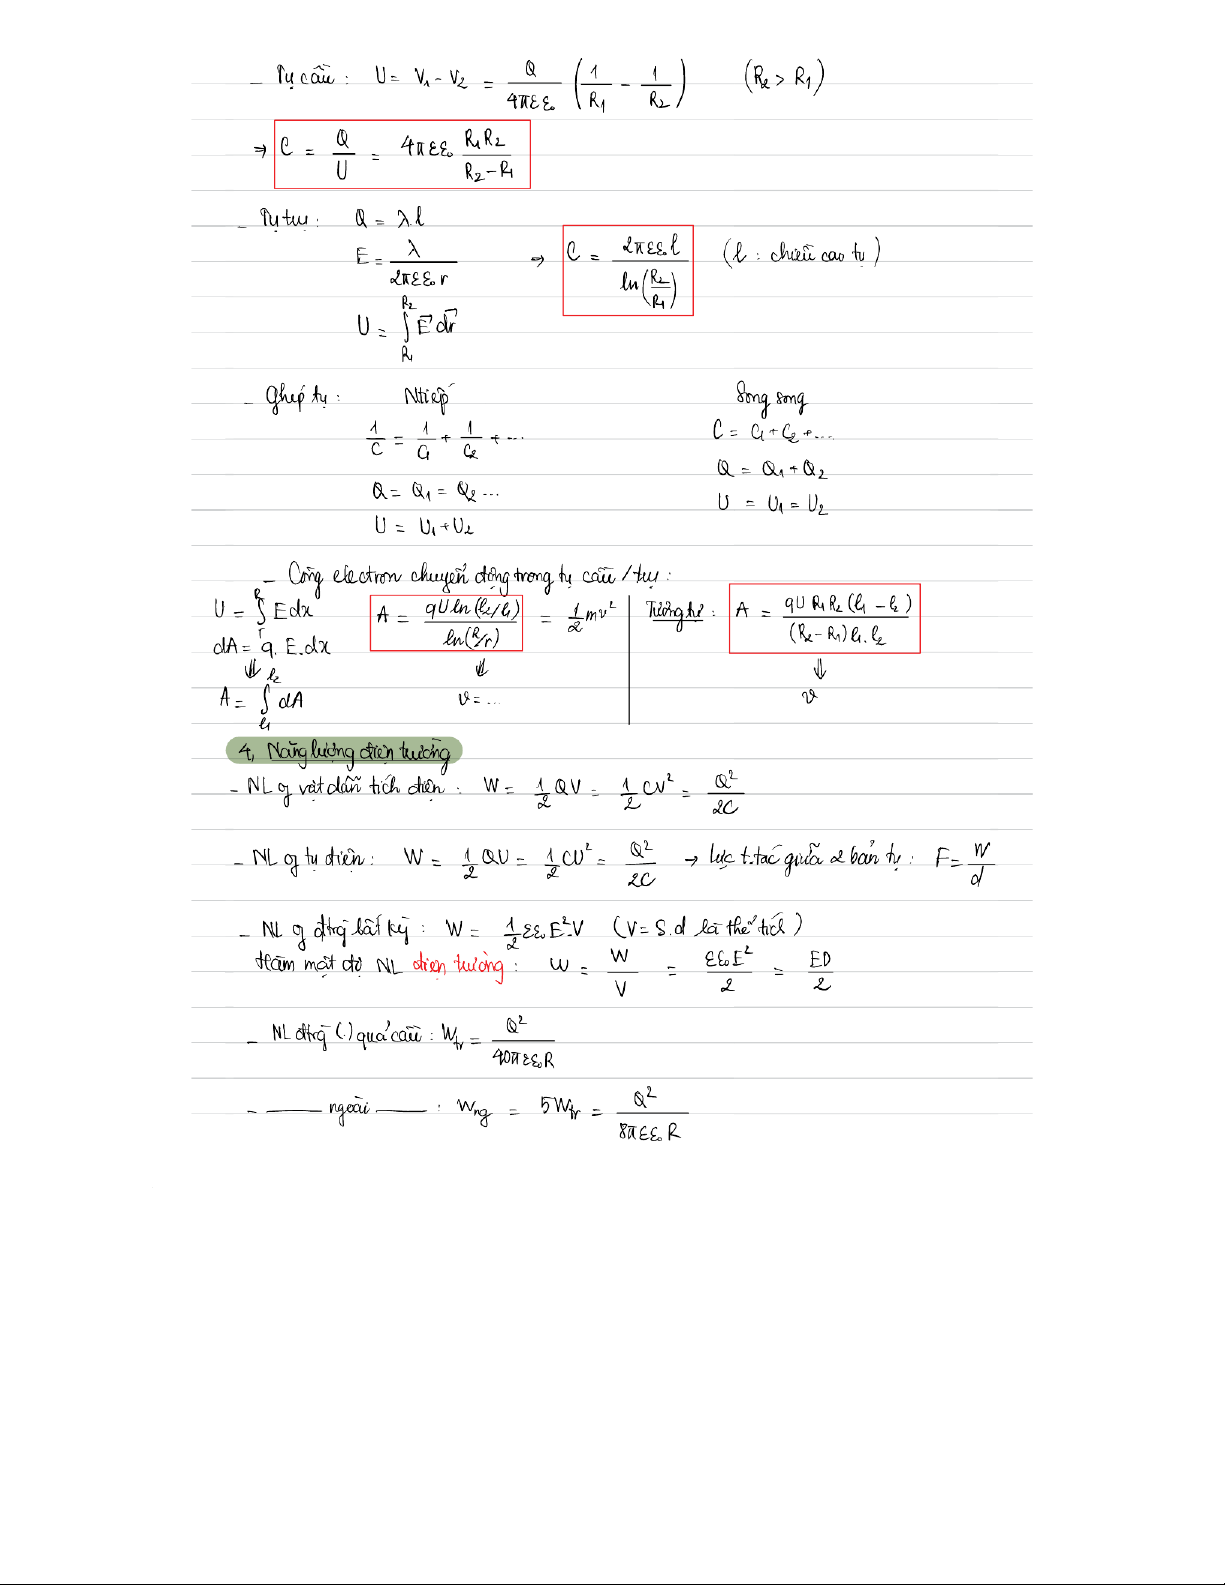 - Tụ cầu : U = V₁ - V₂ = Q / 4πεε₀ (1/R₁ - 1/R₂) (R₂ > R₁)
⇒ C = Q/U = 4πεε₀ R₁R₂ / R₂ - R₁
- Tụ trụ : Q = λ.l
E = λ / 2πεε₀r ⇒ C = 2πεε₀l / ln(R₂/R₁) (l : chiều cao tụ)
U = ∫_{R₁}^{R₂} E⃗ dr⃗
- Ghép tụ : Ntiếp Song song
1/C = 1/C₁ + 1/C₂ + ... C = C₁ + C₂ + ...
Q = Q₁ = Q₂ ... Q = Q₁ + Q₂
U = U₁ + U₂ U = U₁ = U₂
- Công electron chuyển động trong tụ cầu / trụ :
U = ∫_{r}^{R} E dx A = qU ln(l₂/l₁) / ln(R/r) = 1/2 mv² Tương tự : A = qU R₁R₂ (l₁ - l₂) / (R₂ - R₁) l₁.l₂
dA = q. E.dx
⇓ ⇓ ⇓
A = ∫_{l₁}^{l₂} dA v = ... v
4, Năng lượng điện trường
- NL of vật dẫn tích điện : W = 1/2 QV = 1/2 CV² = Q²/2C
- NL of tụ điện : W = 1/2 QU = 1/2 CU² = Q²/2C → lực t.tác giữa 2 bản tụ : F = W/d
- NL of đtrg bất kỳ : W = 1/2 εε₀E².V (V = S.d là thể tích)
Hàm mật độ NL điện trường : w = W/V = εε₀E²/2 = ED/2
- NL đtrg (.) quả cầu : W_tr = Q² / 40πεε₀R
- —— ngoài —— : W_ng = 5W_tr = Q² / 8πεε₀R